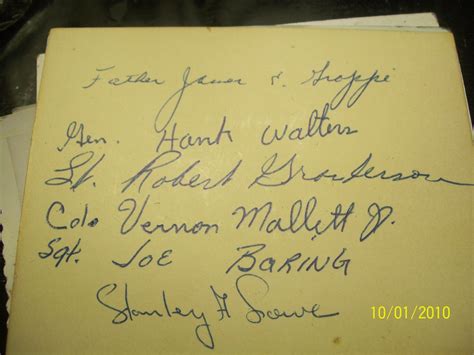 Father James E. Groppi
Gen. Hank Walters
Lt. Robert
Col. Vernon Mallett Jr.
Sgt. JOE BORING
Stanley F
10/01/2010